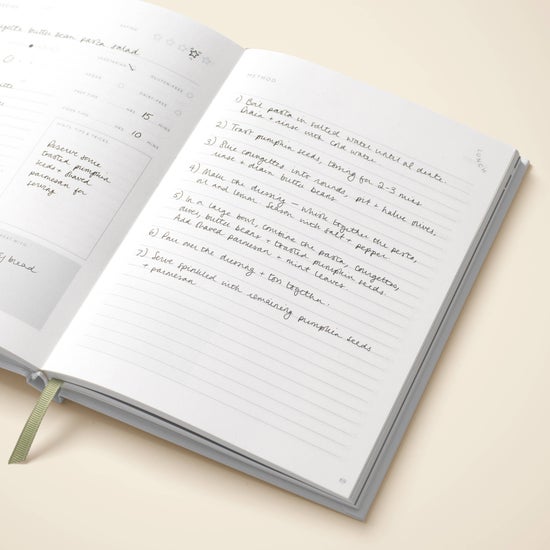 RATING
courgette butter bean pasta salad
VEGETARIAN
GLUTEN-FREE
VEGAN
DAIRY-FREE
PREP TIME
HRS 15 MINS
COOK TIME
HRS 10 MINS
HINTS, TIPS & TRICKS
Reserve some
toasted pumpkin
seeds + shaved
parmesan for
serving
bread
METHOD
LUNCH
1) Boil pasta in salted water until al dente.
Drain + rinse with cold water.
2) Toast pumpkin seeds, tossing for 2-3 mins
3) Slice courgettes into rounds, pit + halve olives,
rinse + drain butter beans.
4) Make the dressing – whisk together the pesto,
oil and lemon. Season with salt + pepper.
5) In a large bowl, combine the pasta, courgettes,
olives, butter beans + toasted pumpkin seeds.
Add shaved parmesan + mint leaves.
6) Pour over the dressing + toss together.
7) Serve sprinkled with remaining pumpkin seeds
+ parmesan